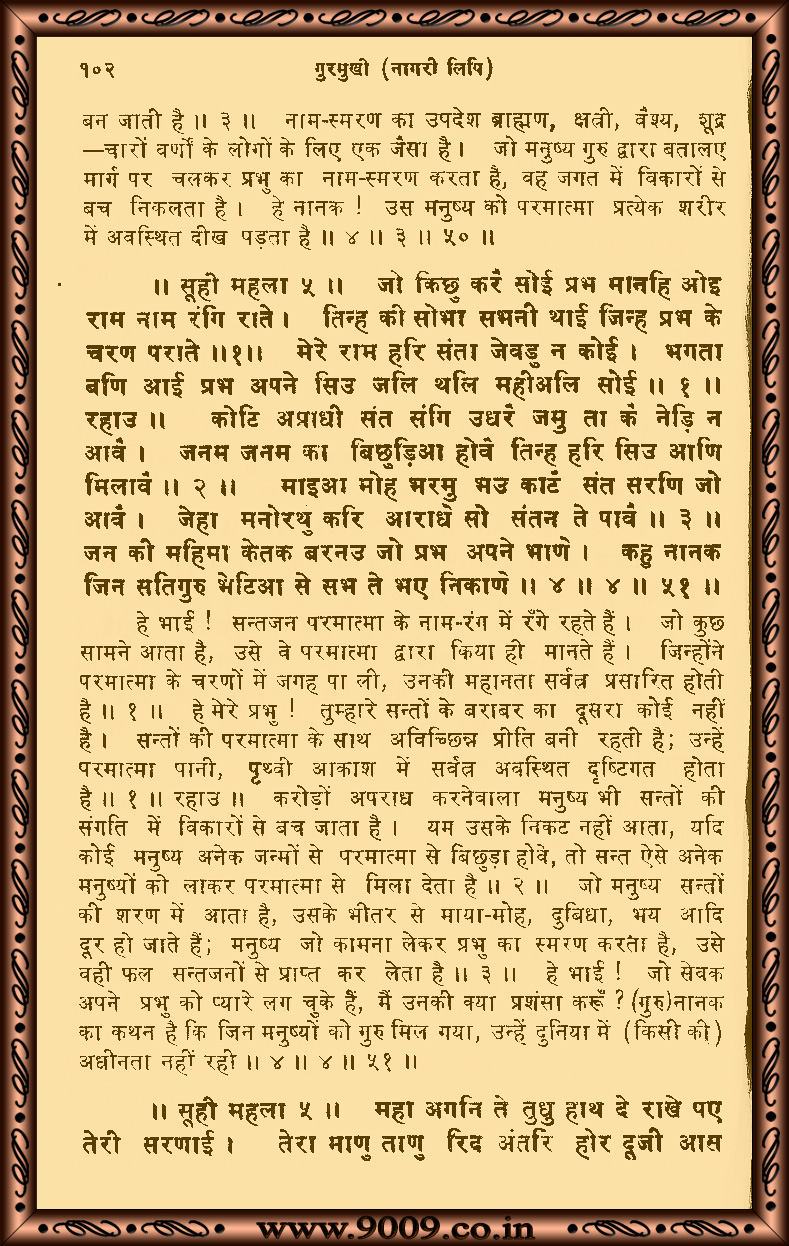 १०२ गुरमुखी (नागरी लिपि)
बन जाती है ॥ ३ ॥ नाम-स्मरण का उपदेश ब्राह्मण, क्षत्री, वैश्य, शूद्र
—चारों वर्णों के लोगों के लिए एक जैसा है। जो मनुष्य गुरु द्वारा बतालए
मार्ग पर चलकर प्रभु का नाम-स्मरण करता है, वह जगत में विकारों से
बच निकलता है। हे नानक ! उस मनुष्य को परमात्मा प्रत्येक शरीर
में अवस्थित दीख पड़ता है ॥ ४ ॥ ३ ॥ ५० ॥
॥ सूही महला ५ ॥ जो किछु करै सोई प्रभ मानहि ओइ
राम नाम रंगि राते। तिन्ह की सोभा सभनी थाई जिन्ह प्रभ के
चरण पराते ॥१॥ मेरे राम हरि संता जेवडु न कोई। भगता
बणि आई प्रभ अपने सिउ जलि थलि महीअलि सोई ॥ १ ॥
रहाउ ॥ कोटि अप्राधी संत संगि उधरै जमु ता कै नेड़ि न
आवै। जनम जनम का बिछुड़िआ होवै तिन्ह हरि सिउ आणि
मिलावै ॥ २ ॥ माइआ मोह भरमु भउ काटै संत सरणि जो
आवै। जेहा मनोरथु करि आराधे सो संतन ते पावै ॥ ३ ॥
जन की महिमा केतक बरनउ जो प्रभ अपने भाणे। कहु नानक
जिन सतिगुरु भेटिआ से सभ ते भए निकाणे ॥ ४ ॥ ४ ॥ ५१ ॥
हे भाई ! सन्तजन परमात्मा के नाम-रंग में रँगे रहते हैं। जो कुछ
सामने आता है, उसे वे परमात्मा द्वारा किया ही मानते हैं। जिन्होंने
परमात्मा के चरणों में जगह पा ली, उनकी महानता सर्वत्र प्रसारित होती
है ॥ १ ॥ हे मेरे प्रभु ! तुम्हारे सन्तों के बराबर का दूसरा कोई नहीं
है। सन्तों की परमात्मा के साथ अविच्छिन्न प्रीति बनी रहती है; उन्हें
परमात्मा पानी, पृथ्वी आकाश में सर्वत्र अवस्थित दृष्टिगत होता
है ॥ १ ॥ रहाउ ॥ करोड़ों अपराध करनेवाला मनुष्य भी सन्तों की
संगति में विकारों से बच जाता है। यम उसके निकट नहीं आता, यदि
कोई मनुष्य अनेक जन्मों से परमात्मा से बिछुड़ा होवे, तो सन्त ऐसे अनेक
मनुष्यों को लाकर परमात्मा से मिला देता है ॥ २ ॥ जो मनुष्य सन्तों
की शरण में आता है, उसके भीतर से माया-मोह, दुबिधा, भय आदि
दूर हो जाते हैं; मनुष्य जो कामना लेकर प्रभु का स्मरण करता है, उसे
वही फल सन्तजनों से प्राप्त कर लेता है ॥ ३ ॥ हे भाई ! जो सेवक
अपने प्रभु को प्यारे लग चुके हैं, मैं उनकी क्या प्रशंसा करूँ ? (गुरु)नानक
का कथन है कि जिन मनुष्यों को गुरु मिल गया, उन्हें दुनिया में (किसी की)
अधीनता नहीं रही ॥ ४ ॥ ४ ॥ ५१ ॥
॥ सूही महला ५ ॥ महा अगनि ते तुधु हाथ दे राखे पए
तेरी सरणाई। तेरा माणु ताणु रिद अंतरि होर दूजी आस
www.9009.co.in